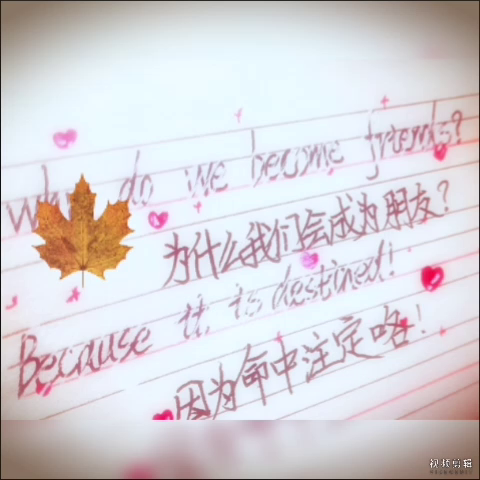 Why do we become friends?
为什么我们会成为朋友?
Because it is destined!
因为命中注定咯!
视频剪辑